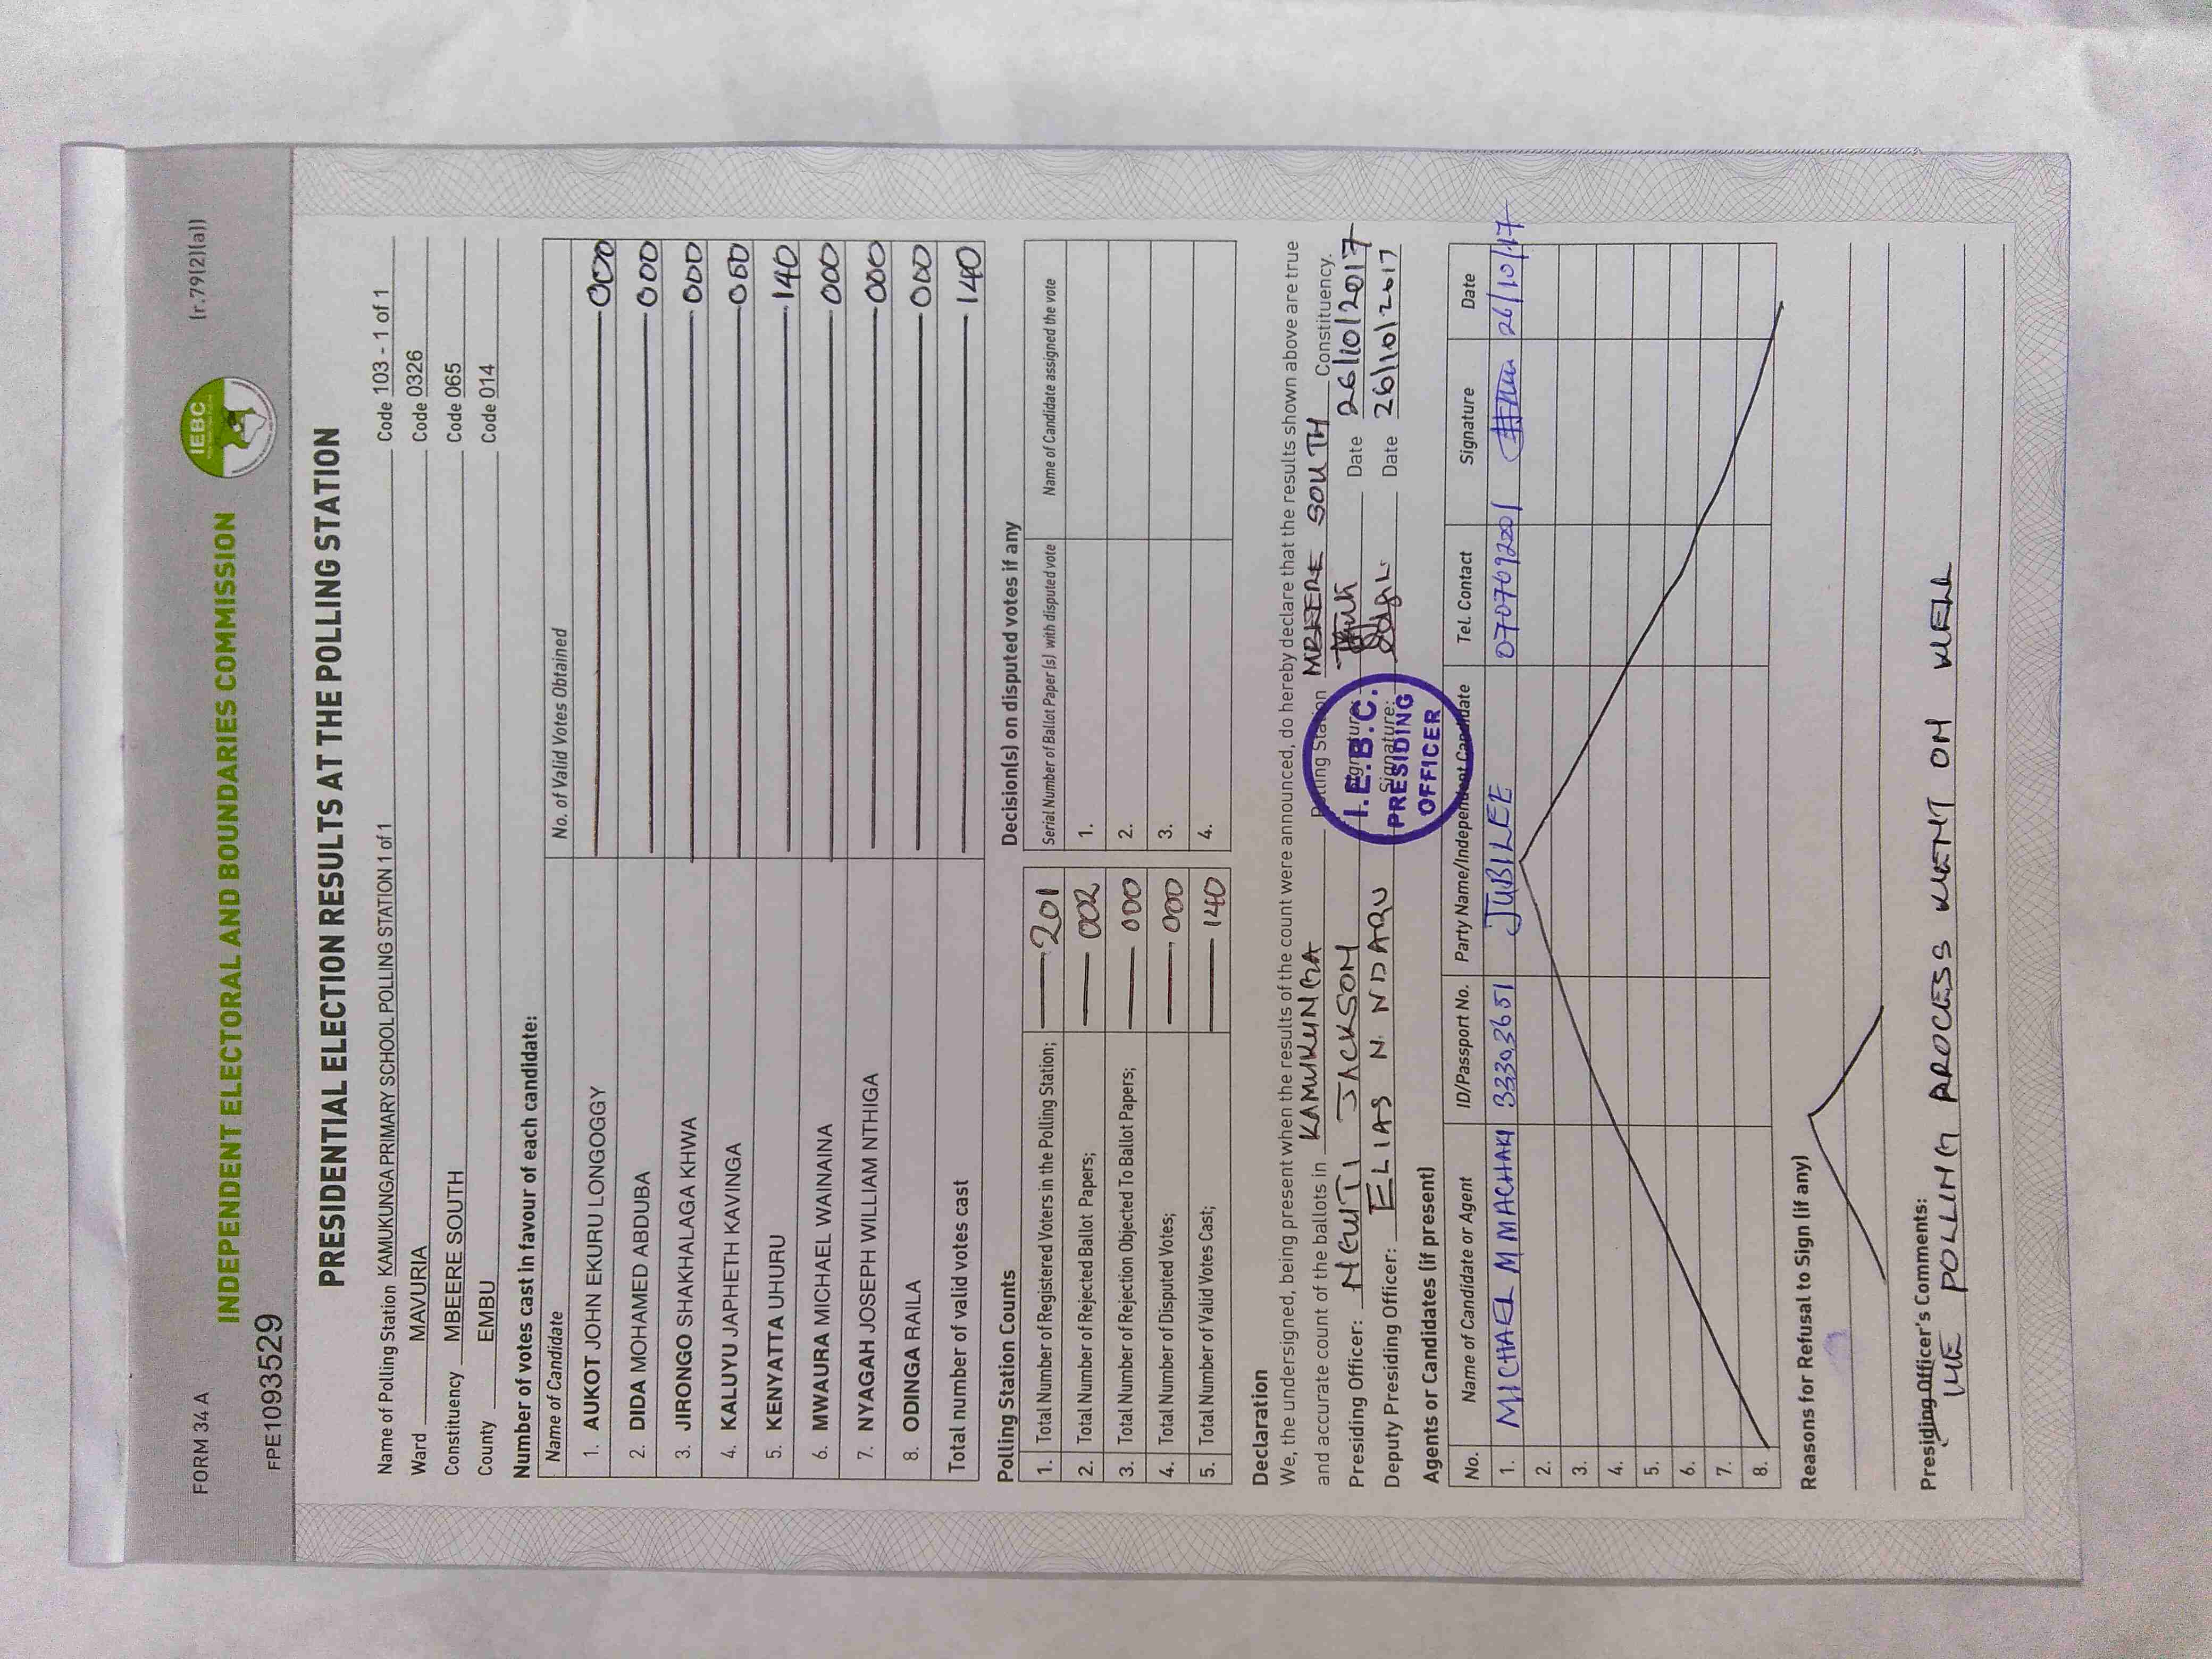 FORM 34 A
(r.79(2)(a))
IEBC
INDEPENDENT ELECTORAL AND BOUNDARIES COMMISSION
FPE1093529
PRESIDENTIAL ELECTION RESULTS AT THE POLLING STATION
Name of Polling Station KAMUKUNGA PRIMARY SCHOOL POLLING STATION 1 of 1 Code 103 - 1 of 1
Ward MAVURIA Code 0326
Constituency MBEERE SOUTH Code 065
County EMBU Code 014
Number of votes cast in favour of each candidate:
Name of Candidate No. of Valid Votes Obtained
1. AUKOT JOHN EKURU LONGOGGY 000
2. DIDA MOHAMED ABDUBA 000
3. JIRONGO SHAKHALAGA KHWA 000
4. KALUYU JAPHETH KAVINGA 000
5. KENYATTA UHURU 140
6. MWAURA MICHAEL WAINAINA 000
7. NYAGAH JOSEPH WILLIAM NTHIGA 000
8. ODINGA RAILA 000
Total number of valid votes cast 140
Polling Station Counts
1. Total Number of Registered Voters in the Polling Station; 201
2. Total Number of Rejected Ballot Papers; 002
3. Total Number of Rejection Objected To Ballot Papers; 000
4. Total Number of Disputed Votes; 000
5. Total Number of Valid Votes Cast; 140
Decision(s) on disputed votes if any
Serial Number of Ballot Paper (s) with disputed vote Name of Candidate assigned the vote
1.
2.
3.
4.
Declaration
We, the undersigned, being present when the results of the count were announced, do hereby declare that the results shown above are true
and accurate count of the ballots in KAMUKUNGA Polling Station MBEERE SOUTH Constituency.
Presiding Officer: NGUTI JACKSON Signature: Date 26/10/2017
Deputy Presiding Officer: ELIAS N. NDARU Signature: Date 26/10/2017
I.E.B.C.
PRESIDING
OFFICER
Agents or Candidates (if present)
No. Name of Candidate or Agent ID/Passport No. Party Name/Independent Candidate Tel. Contact Signature Date
1. MICHAEL M MACHAKI 33303651 JUBILEE 0707092001 26/10/17
2.
3.
4.
5.
6.
7.
8.
Reasons for Refusal to Sign (if any)
Presiding Officer's Comments:
THE POLLING PROCESS WENT ON WELL